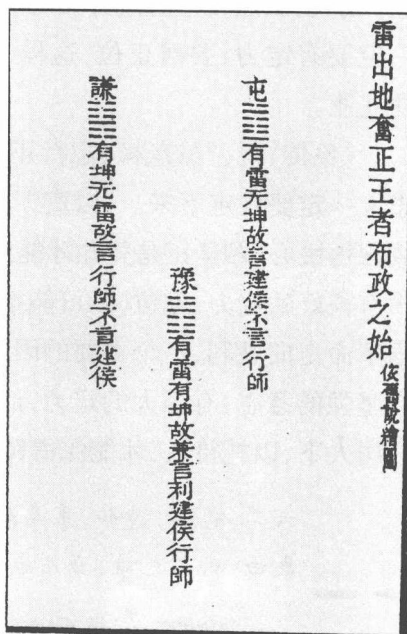 雷出地奮正王者布政之始 依舊說繪圖
屯 有雷无坤故言建侯不言行師
豫 有雷有坤故兼言利建侯行師
謙 有坤无雷故言行師不言建侯